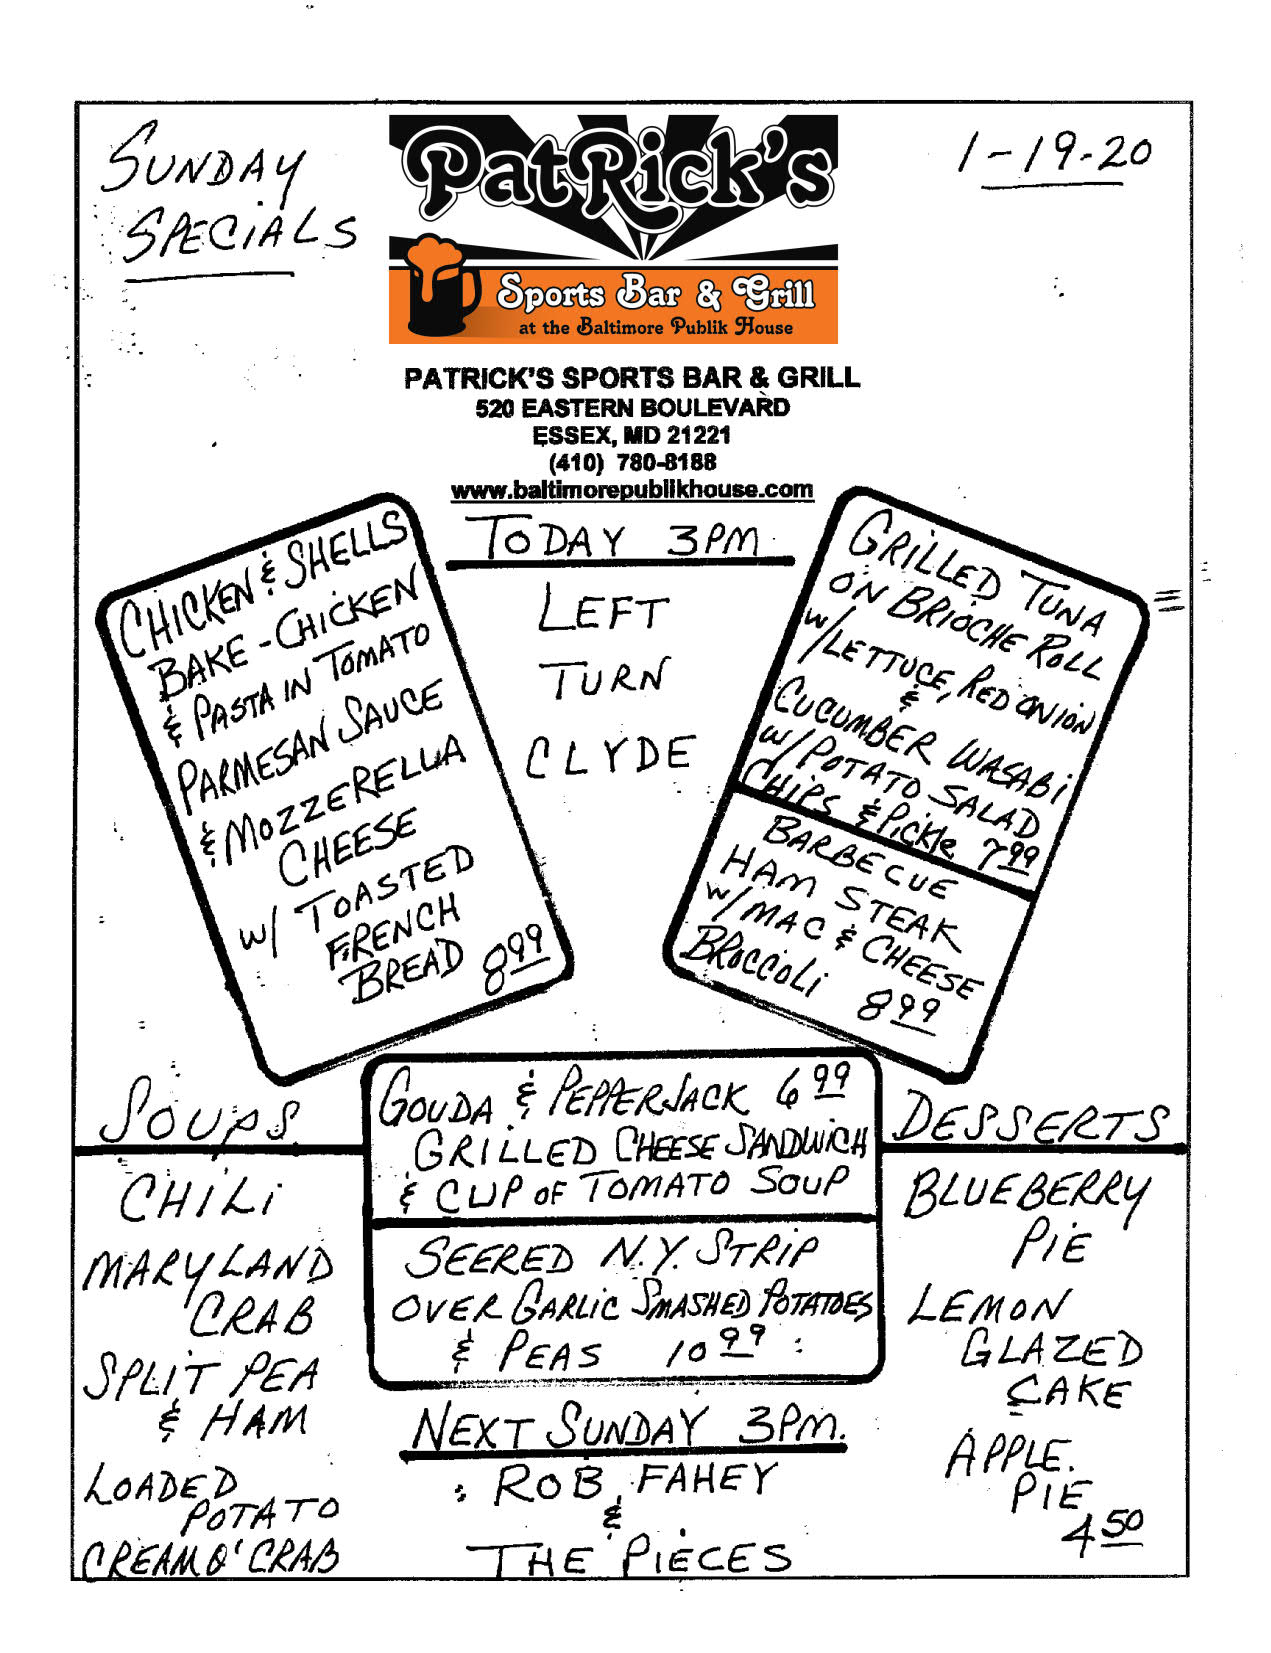 SUNDAY
SPECIALS
1-19-20
PatRick's
Sports Bar & Grill
at the Baltimore Publik House
PATRICK'S SPORTS BAR & GRILL
520 EASTERN BOULEVARD
ESSEX, MD 21221
(410) 780-8188
www.baltimorepublikhouse.com
CHICKEN & SHELLS
BAKE - CHICKEN
& PASTA IN TOMATO
PARMESAN SAUCE
& MOZZERELLA
CHEESE
W/ TOASTED
FRENCH
BREAD 8 99
TODAY 3PM
LEFT
TURN
CLYDE
GRILLED TUNA
ON BRIOCHE ROLL
W/LETTUCE, RED ONION
&
CUCUMBER WASABI
W/POTATO SALAD
CHIPS & PICKLE 7 99
BARBECUE
HAM STEAK
W/MAC & CHEESE
BROCCOLI 8 99
SOUPS
CHILI
MARYLAND
CRAB
SPLIT PEA
& HAM
LOADED
POTATO
CREAM O' CRAB
GOUDA & PEPPERJACK 6 99
GRILLED CHEESE SANDWICH
& CUP OF TOMATO SOUP
SEERED N.Y. STRIP
OVER GARLIC SMASHED POTATOES
& PEAS 10 99
NEXT SUNDAY 3PM.
ROB FAHEY
&
THE PIECES
DESSERTS
BLUEBERRY
PIE
LEMON
GLAZED
CAKE
APPLE
PIE
4 50